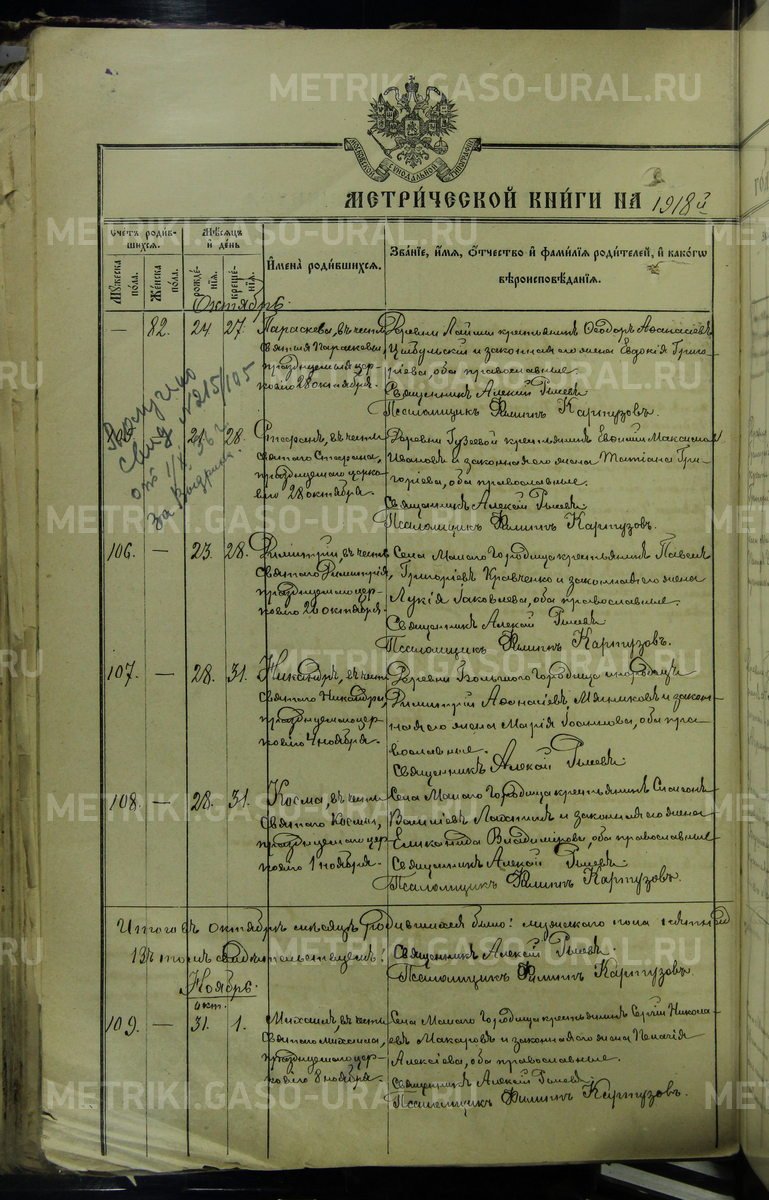 МЕТРИ́ЧЕСКОЙ КНИ́ГИ НА 1918 г.
Сче́тъ роди́в-
шихся.
Мꙋжеска по́ла.
Же́нска по́ла.
Мѣ́сяцъ
и҆ де́нь
рожде́-
нїя.
креще́-
нїя.
И҆мена̀ роди́вшихся.
Зва́нїе, и҆́мя, ѻ҆́тчество и҆ фами́лїя роди́телей, и҆ како́гѡ
вѣроисповѣ́данїя.
Октябрь.
— 82. 24 27. Параскева, въ честь
Святыя Параскевы,
празднуемыя цер-
ковію 28 октября.
Деревни крестьянинъ Ѳеодоръ Аѳанасіевъ
Цыбульскій и законная его жена Евдокія Григо-
ріева, оба православные.
Священникъ Алексій
Псаломщикъ Филиппъ Картузовъ.
Получено
свид № 215/105
за
— 21. 28. Стефанъ, въ честь
Святого Стефана,
празднуемого церко-
вію 28 октября.
Деревни Гузеевой крестьянинъ Евѳимій Максимовъ
Ивановъ и законная его жена Татіана Гри-
горіева, оба православные.
Священникъ Алексій
Псаломщикъ Филиппъ Картузовъ.
106. — 23. 28. Димитрій, въ честь
Святаго Димитрія,
празднуемаго цер-
ковію 26 октября.
Села Малаго Городища крестьянинъ Павелъ
Григоріевъ Кравченко и законная его жена
Лукія Іаковлева, оба православные.
Священникъ Алексій
Псаломщикъ Филиппъ Картузовъ.
107. — 28. 31. Никандръ, въ честь
Святаго Никандра,
празднуемаго цер-
ковію 4 ноября.
Деревни Большого Городища инородецъ
Димитрій Аѳанасіевъ Мясниковъ и закон-
ная его жена Марія, оба пра-
вославные.
Священникъ Алексій
108. — 28. 31. Косма, въ честь
Святаго Космы,
празднуемаго цер-
ковію 1 ноября.
Села Малаго Городища крестьянинъ
Василіевъ и законная его жена
Владимірова, оба православные
Священникъ Алексій
Псаломщикъ Филиппъ Картузовъ.
Итого въ октябрѣ мѣсяцѣ родившихся было: мужескаго пола
Въ томъ свидѣтельствуемъ: Священникъ Алексій
Псаломщикъ Филиппъ Картузовъ
Ноябрь.
окт.
109. — 31. 1. Михаилъ, въ честь
Святаго Михаила,
празднуемаго цер-
ковію 8 ноября.
Села Малаго Городища крестьянинъ Сергій Никола-
евъ Макаровъ и законная его жена Пелагія
Алексіева, оба православные.
Священникъ Алексій
Псаломщикъ Филиппъ Картузовъ.
METRIKI.GASO-URAL.RU